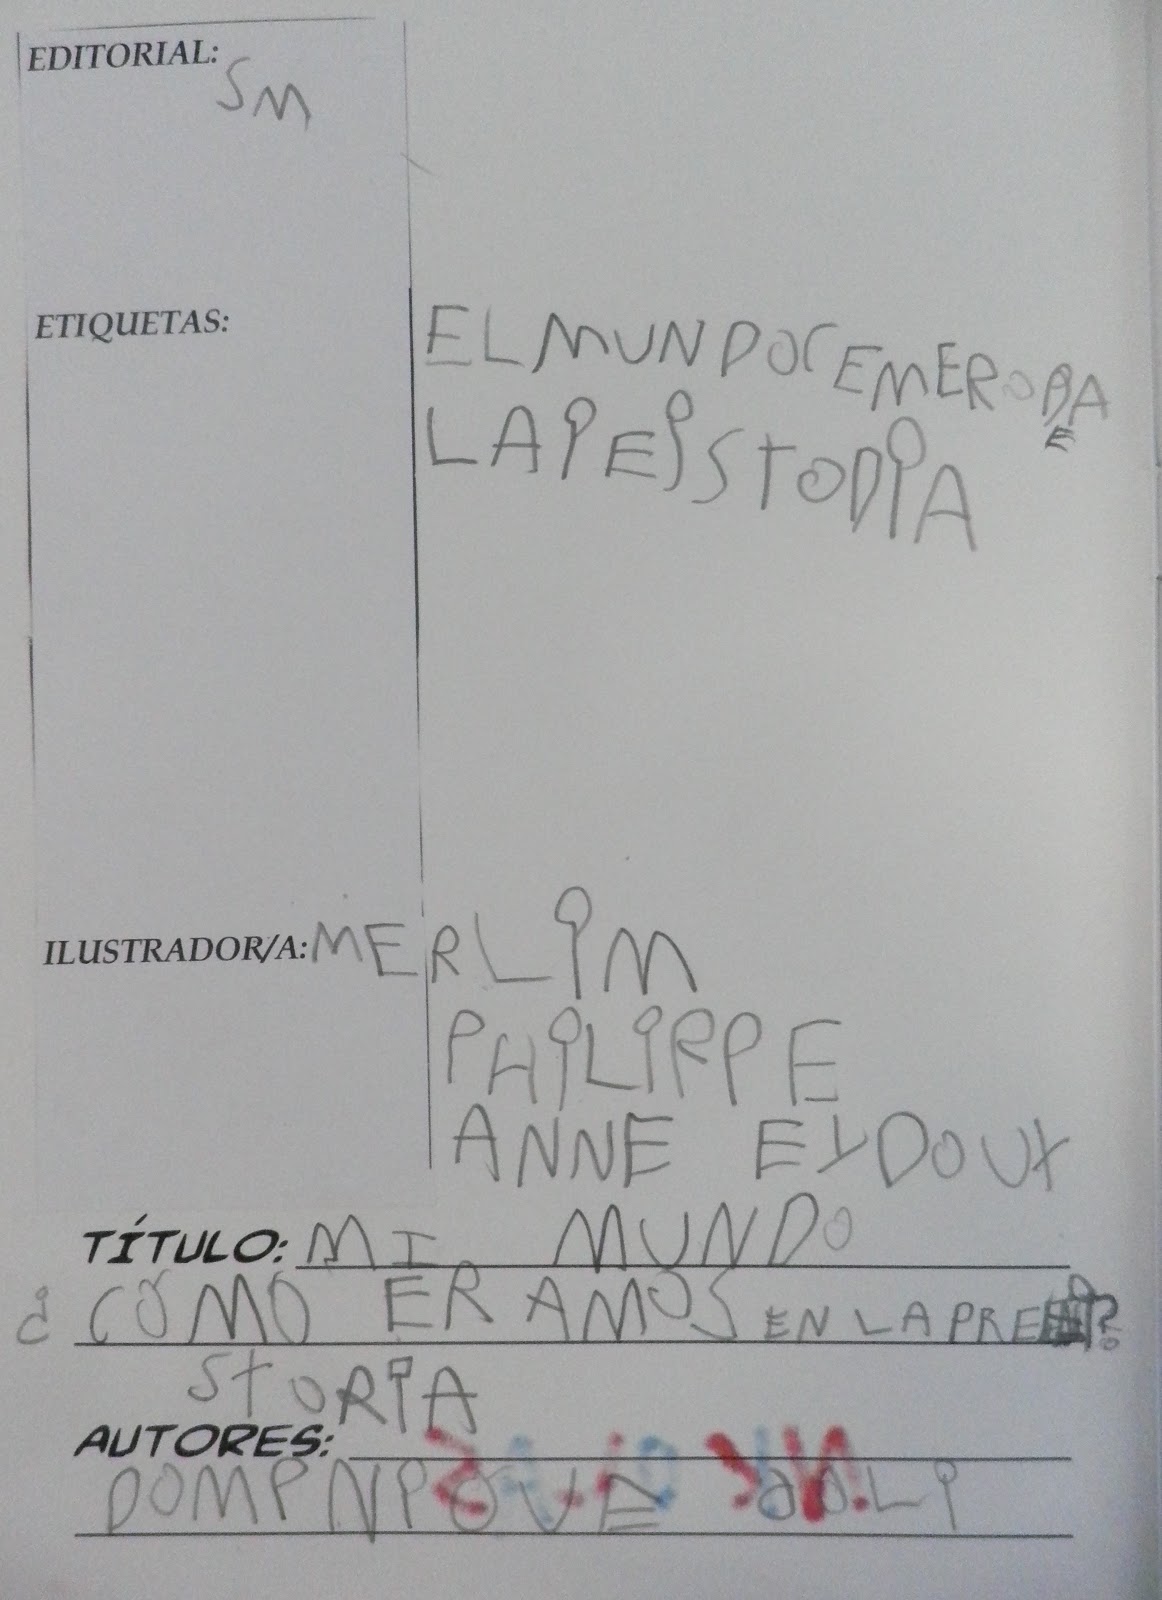 EDITORIAL:
SM
ETIQUETAS: EL MUNDO CEMEROBA
E
LA PEISTODIA
ILUSTRADOR/A: MERLIM
PHILIPPE
ANNE EYDOUX
TÍTULO: MI MUNDO
¿ COMO ERAMOS EN LA PRE ?
STORIA
AUTORES: